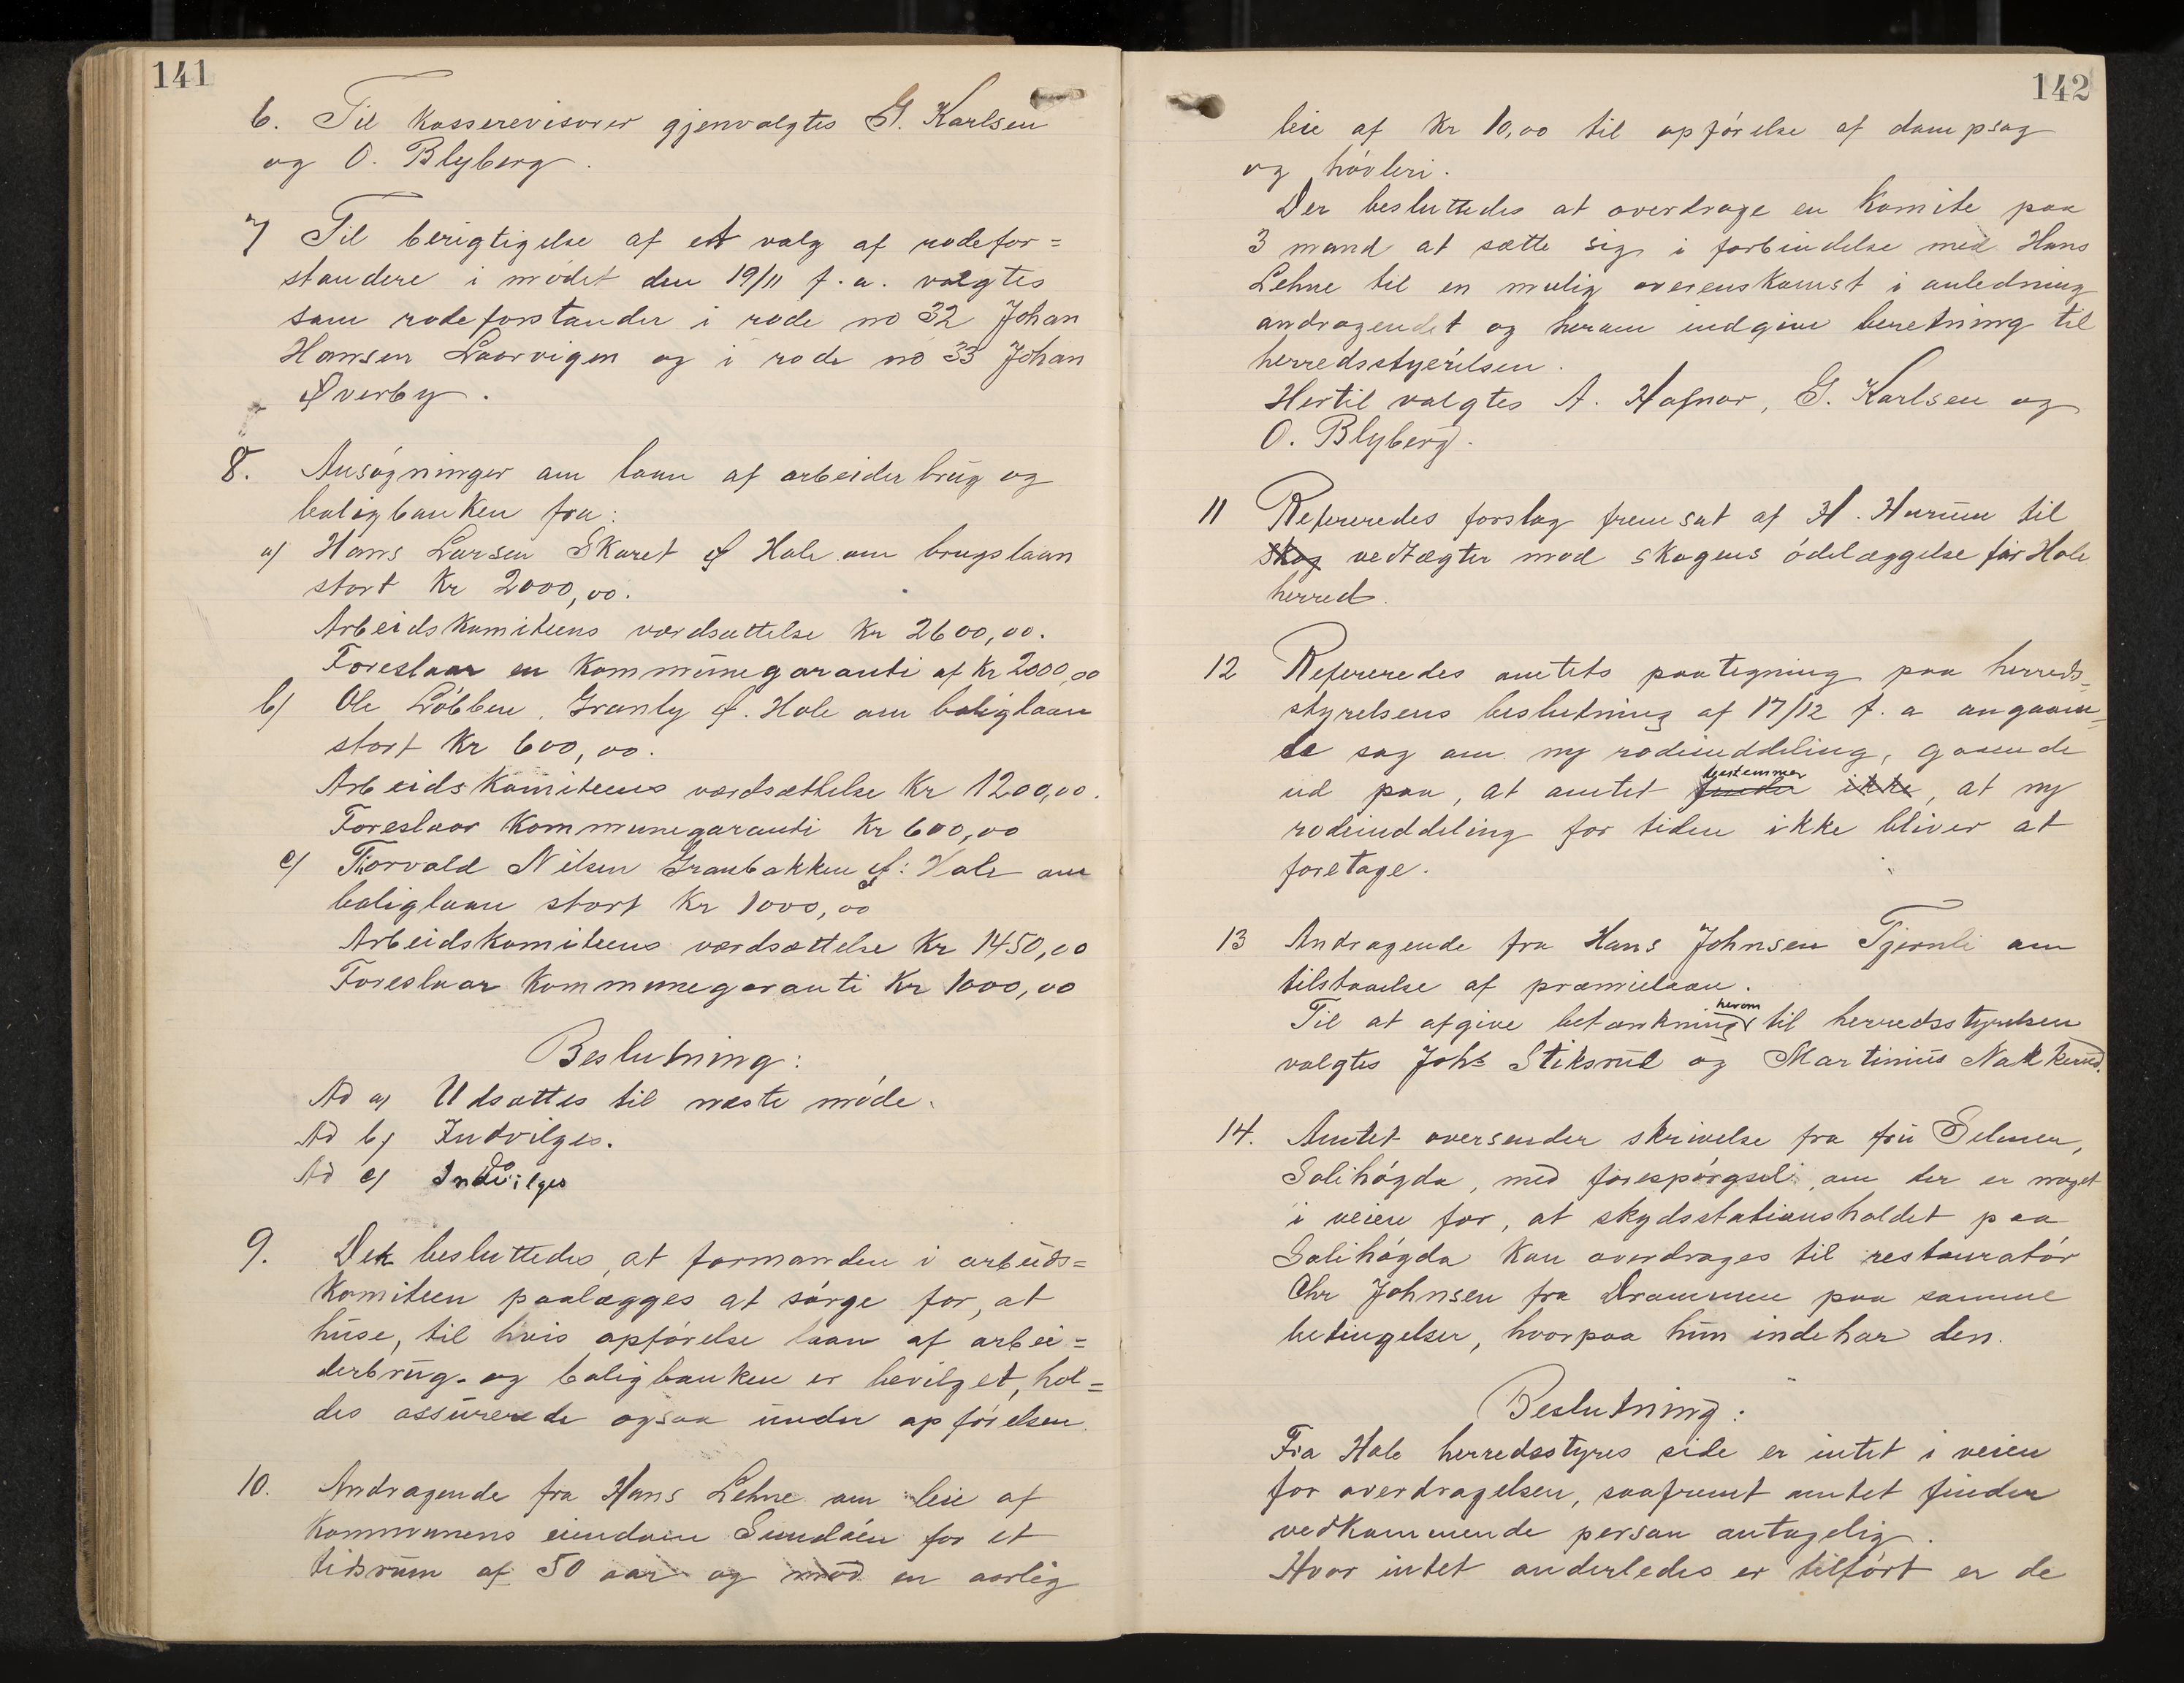 141
6. Til kasserevisorer gjenvalgtes G. Karlsen
og O. Blyberg.
7) Til berigtigelse af et valg af rodefor=
standere i mödet den 19/11 f. a. valgtes
som rodeforstander i rode no 32 Johan
Hansen Laarvigen og i rode no 33 Johan
Øverby.
8. Ansögninger om laan af arbeiderbrug og
boligbanken fra:
a) Hans Larsen Skaret af Hole om brugslaan
stort Kr 2000,00.
Arbeidskomiteens værdsættelse Kr 2600,00.
Foreslaar en kommunegaranti af Kr 2000,00
b) Ole Löbben, Granly af Hole om boliglaan
stort Kr 600,00.
Arbeidskomiteens værdsættelse Kr 1200,00.
Foreslaar Kommunegaranti Kr 600,00
c) Torvald Nilsen Granbakken af Hole om
boliglaan stort Kr 1000,00
Arbeidskomiteens værdsættelse Kr 1450,00
Foreslaar kommunegaranti Kr 1000,00
Beslutning:
Ad a) Udsættes til næste möde.
Ad b) Indvilges.
Ad c) Indvilges
9. Det besluttedes, at formanden i arbeids=
komiteen paalægges at sörge for, at
huse, til hvis opförelse laan af arbei=
derbrug- og boligbanken er bevilget, hol=
des assurerede ogsaa under opförelsen.
10. Andragende fra Hans Lehne om leie af
Kommunens eiendom Sundöen for et
tidsrum af 50 aar og mod en aarlig
142
leie af Kr 10,00 til opförelse af dampsag
og hövleri.
Der besluttedes at overdrage en Komite paa
3 mand at sætte sig i forbindelse med Hans
Lehne til en mulig overenskomst i anledning
andragendet og herom indgive beretning til
herredsstyrelsen.
Hertil valgtes A. Hafnor, G. Karlsen og
O. Blyberg.
11 Refereredes forslag fremsat af H. Harum til
skog vedtægter mod skogens ödelæggelse for Hole
herred.
12 Refereredes amtets paategning paa herreds=
styrelsens beslutning af 17/12 f. a angaaen=
de sag om ny rodeinddeling, gaaende
ud paa, at amtet finder bestemmer ikke, at ny
rodeinddeling for tiden ikke bliver at
foretage.
13 Andragende fra Hans Johnsen Tjernli om
tilstaaelse af præmielaan.
Til at afgive betænkning herom til herredsstyrelsen
valgtes Johs Stiksrud og Martinius Nakkerud.
14. Amtet oversender skrivelse fra fru Selmer,
Solihögda, med forespörgsel, om der er noget
i veien for, at skydsstationsholdet paa
Solihögda kan overdrages til restauratör
Chr Johnsen fra Drammen paa samme
betingelser, hvorpaa hun indehar den.
Beslutning:
Fra Hole herredsstyres side er intet i veien
for overdragelsen, saafremt amtet finder
vedkommende person antagelig.
Hvor intet anderledes er tilfört er de